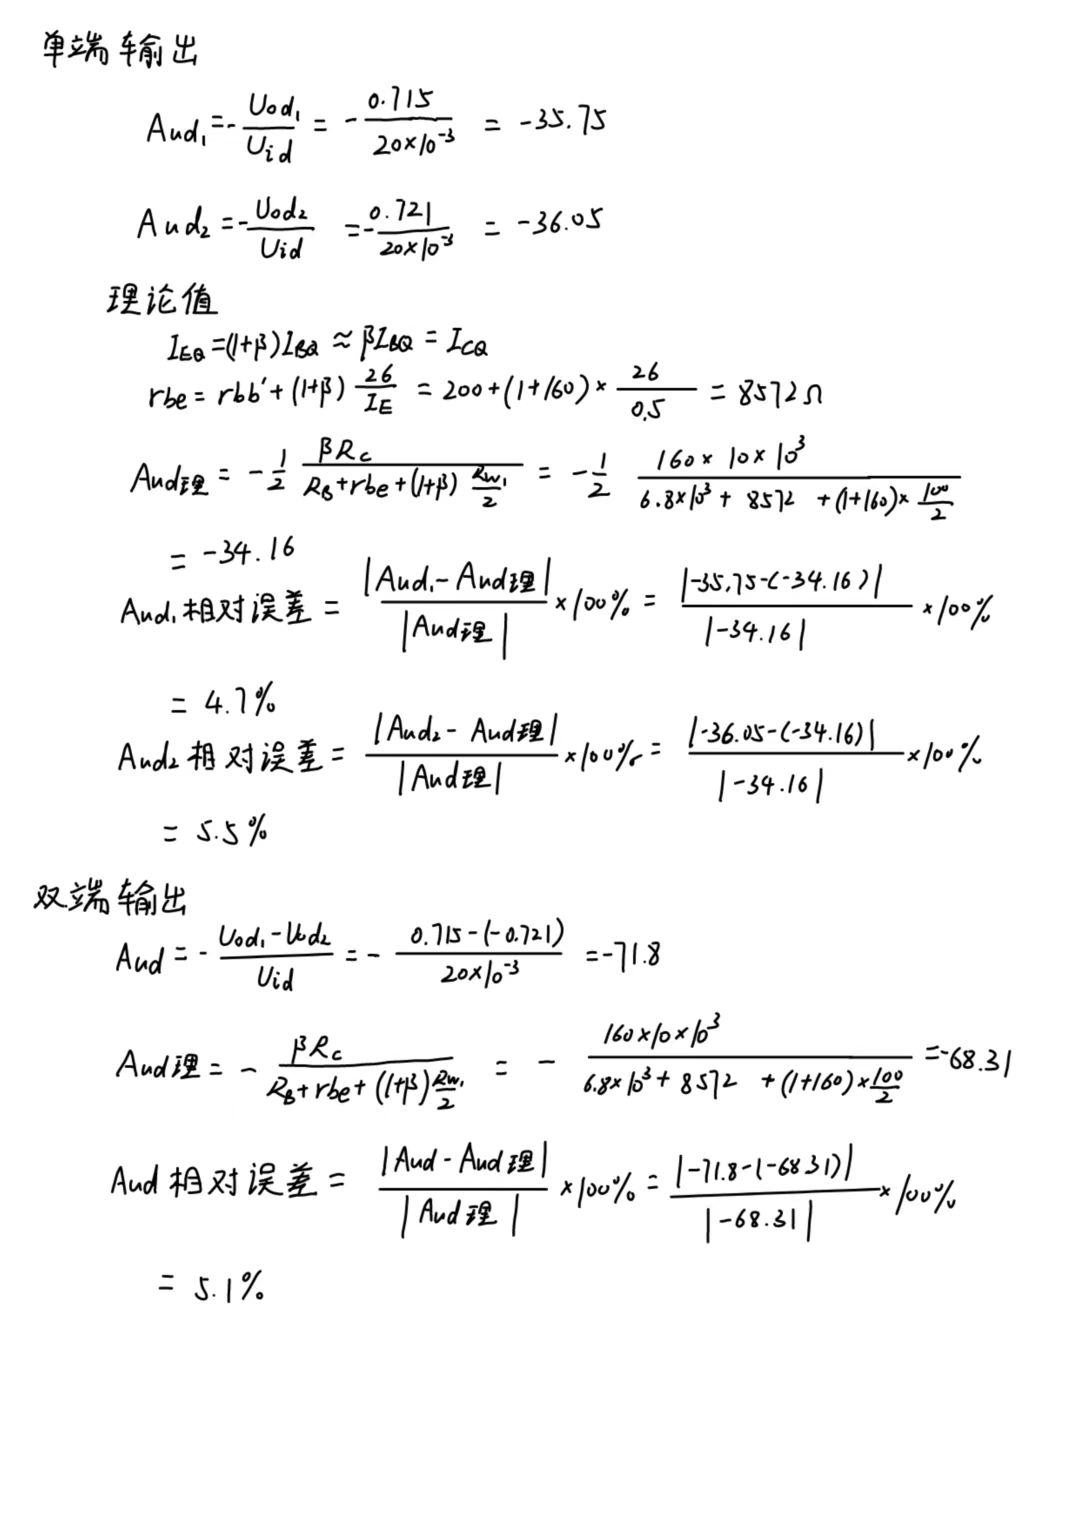 单端输出
Aud₁=-Uod₁/Uid = -0.715/20×10⁻³ = -35.75
Aud₂=-Uod₂/Uid =-0.721/20×10⁻³ = -36.05
理论值
IEQ=(1+β)IBQ≈βIBQ=ICQ
rbe=rbb'+(1+β)26/IE =200+(1+160)×26/0.5 = 8572Ω
Aud理 = -1/2 βRc/RB+rbe+(1+β)RW₁/2 = -1/2 160×10×10³/6.8×10³+8572+(1+160)×100/2
= -34.16
Aud₁相对误差= |Aud₁-Aud理|/|Aud理| ×100% = |-35.75-(-34.16)|/|-34.16| ×100%
= 4.7%
Aud₂相对误差= |Aud₂-Aud理|/|Aud理| ×100% = |-36.05-(-34.16)|/|-34.16| ×100%
= 5.5%
双端输出
Aud=-Uod₁-Uod₂/Uid =- 0.715-(-0.721)/20×10⁻³ =-71.8
Aud理=- βRc/RB+rbe+(1+β)RW₁/2 = - 160×10×10³/6.8×10³+8572+(1+160)×100/2 =-68.31
Aud相对误差= |Aud-Aud理|/|Aud理| ×100% = |-71.8-(-68.31)|/|-68.31| ×100%
= 5.1%